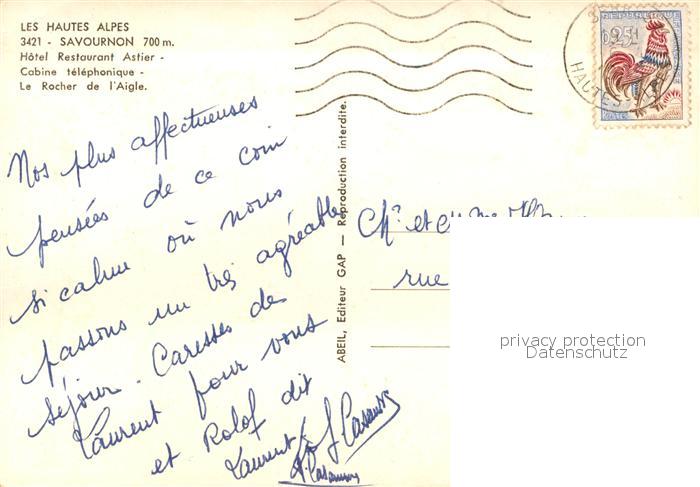 LES HAUTES ALPES
3421 - SAVOURNON 700 m.
Hôtel Restaurant Astier -
Cabine téléphonique -
Le Rocher de l'Aigle.
Nos plus affectueuses
pensées de ce coin
si calme où nous
passons un très agréable
séjour. Caresses de
Laurent pour vous
et Rolof dit
Laurent
ABEIL, Editeur GAP — Reproduction interdite.
0,25
HAUTES
Mr et Mme
rue
privacy protection
Datenschutz